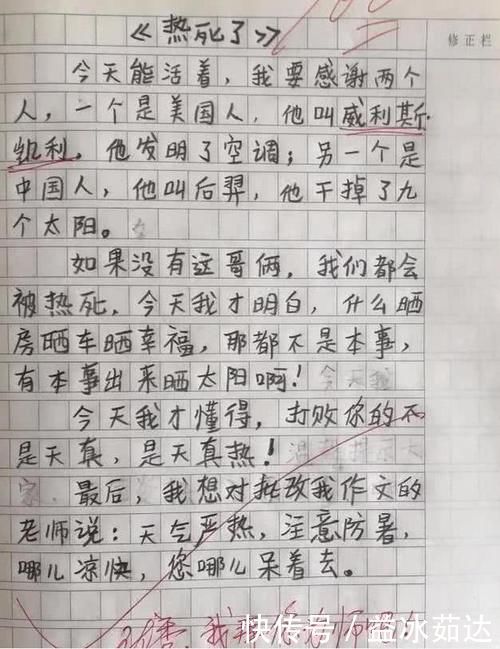 《热死了》
修正栏
今天能活着，我要感谢两个
人，一个是美国人，他叫威利斯·
凯利，他发明了空调；另一个是
中国人，他叫后羿，他干掉了九
个太阳。
如果没有这哥俩，我们都会
被热死，今天我才明白，什么晒
房晒车晒幸福，那都不是本事，
有本事出来晒太阳啊！今天我
今天我才懂得，打败你的不
是天真，是天真热！
家
最后，我想对批改我作文的
老师说：天气严热，注意防暑，
哪儿凉快，您哪儿呆着去。
我
快传号／益冰茹达